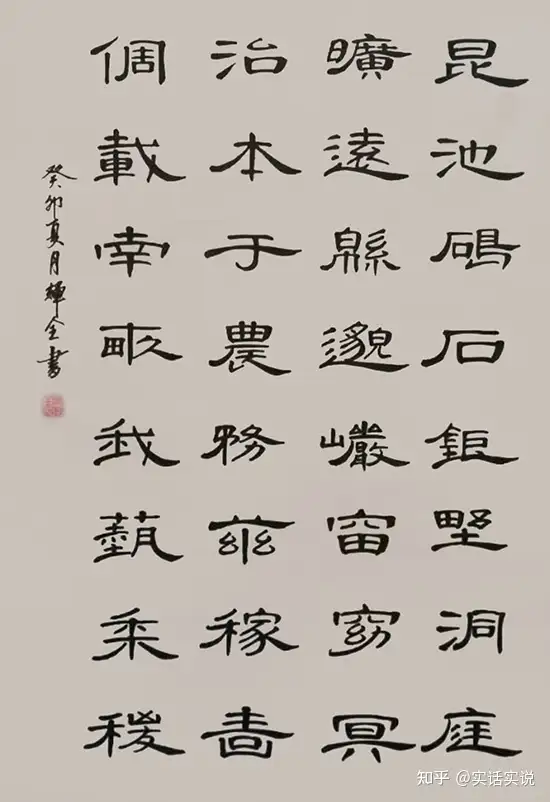 昆池碣石鉅野洞庭
曠遠緜邈巖宙窈冥
治本于農務茲稼嗇
倜載南畝我蓺黍稷
癸卯夏月輝全書
知乎 @实话实说